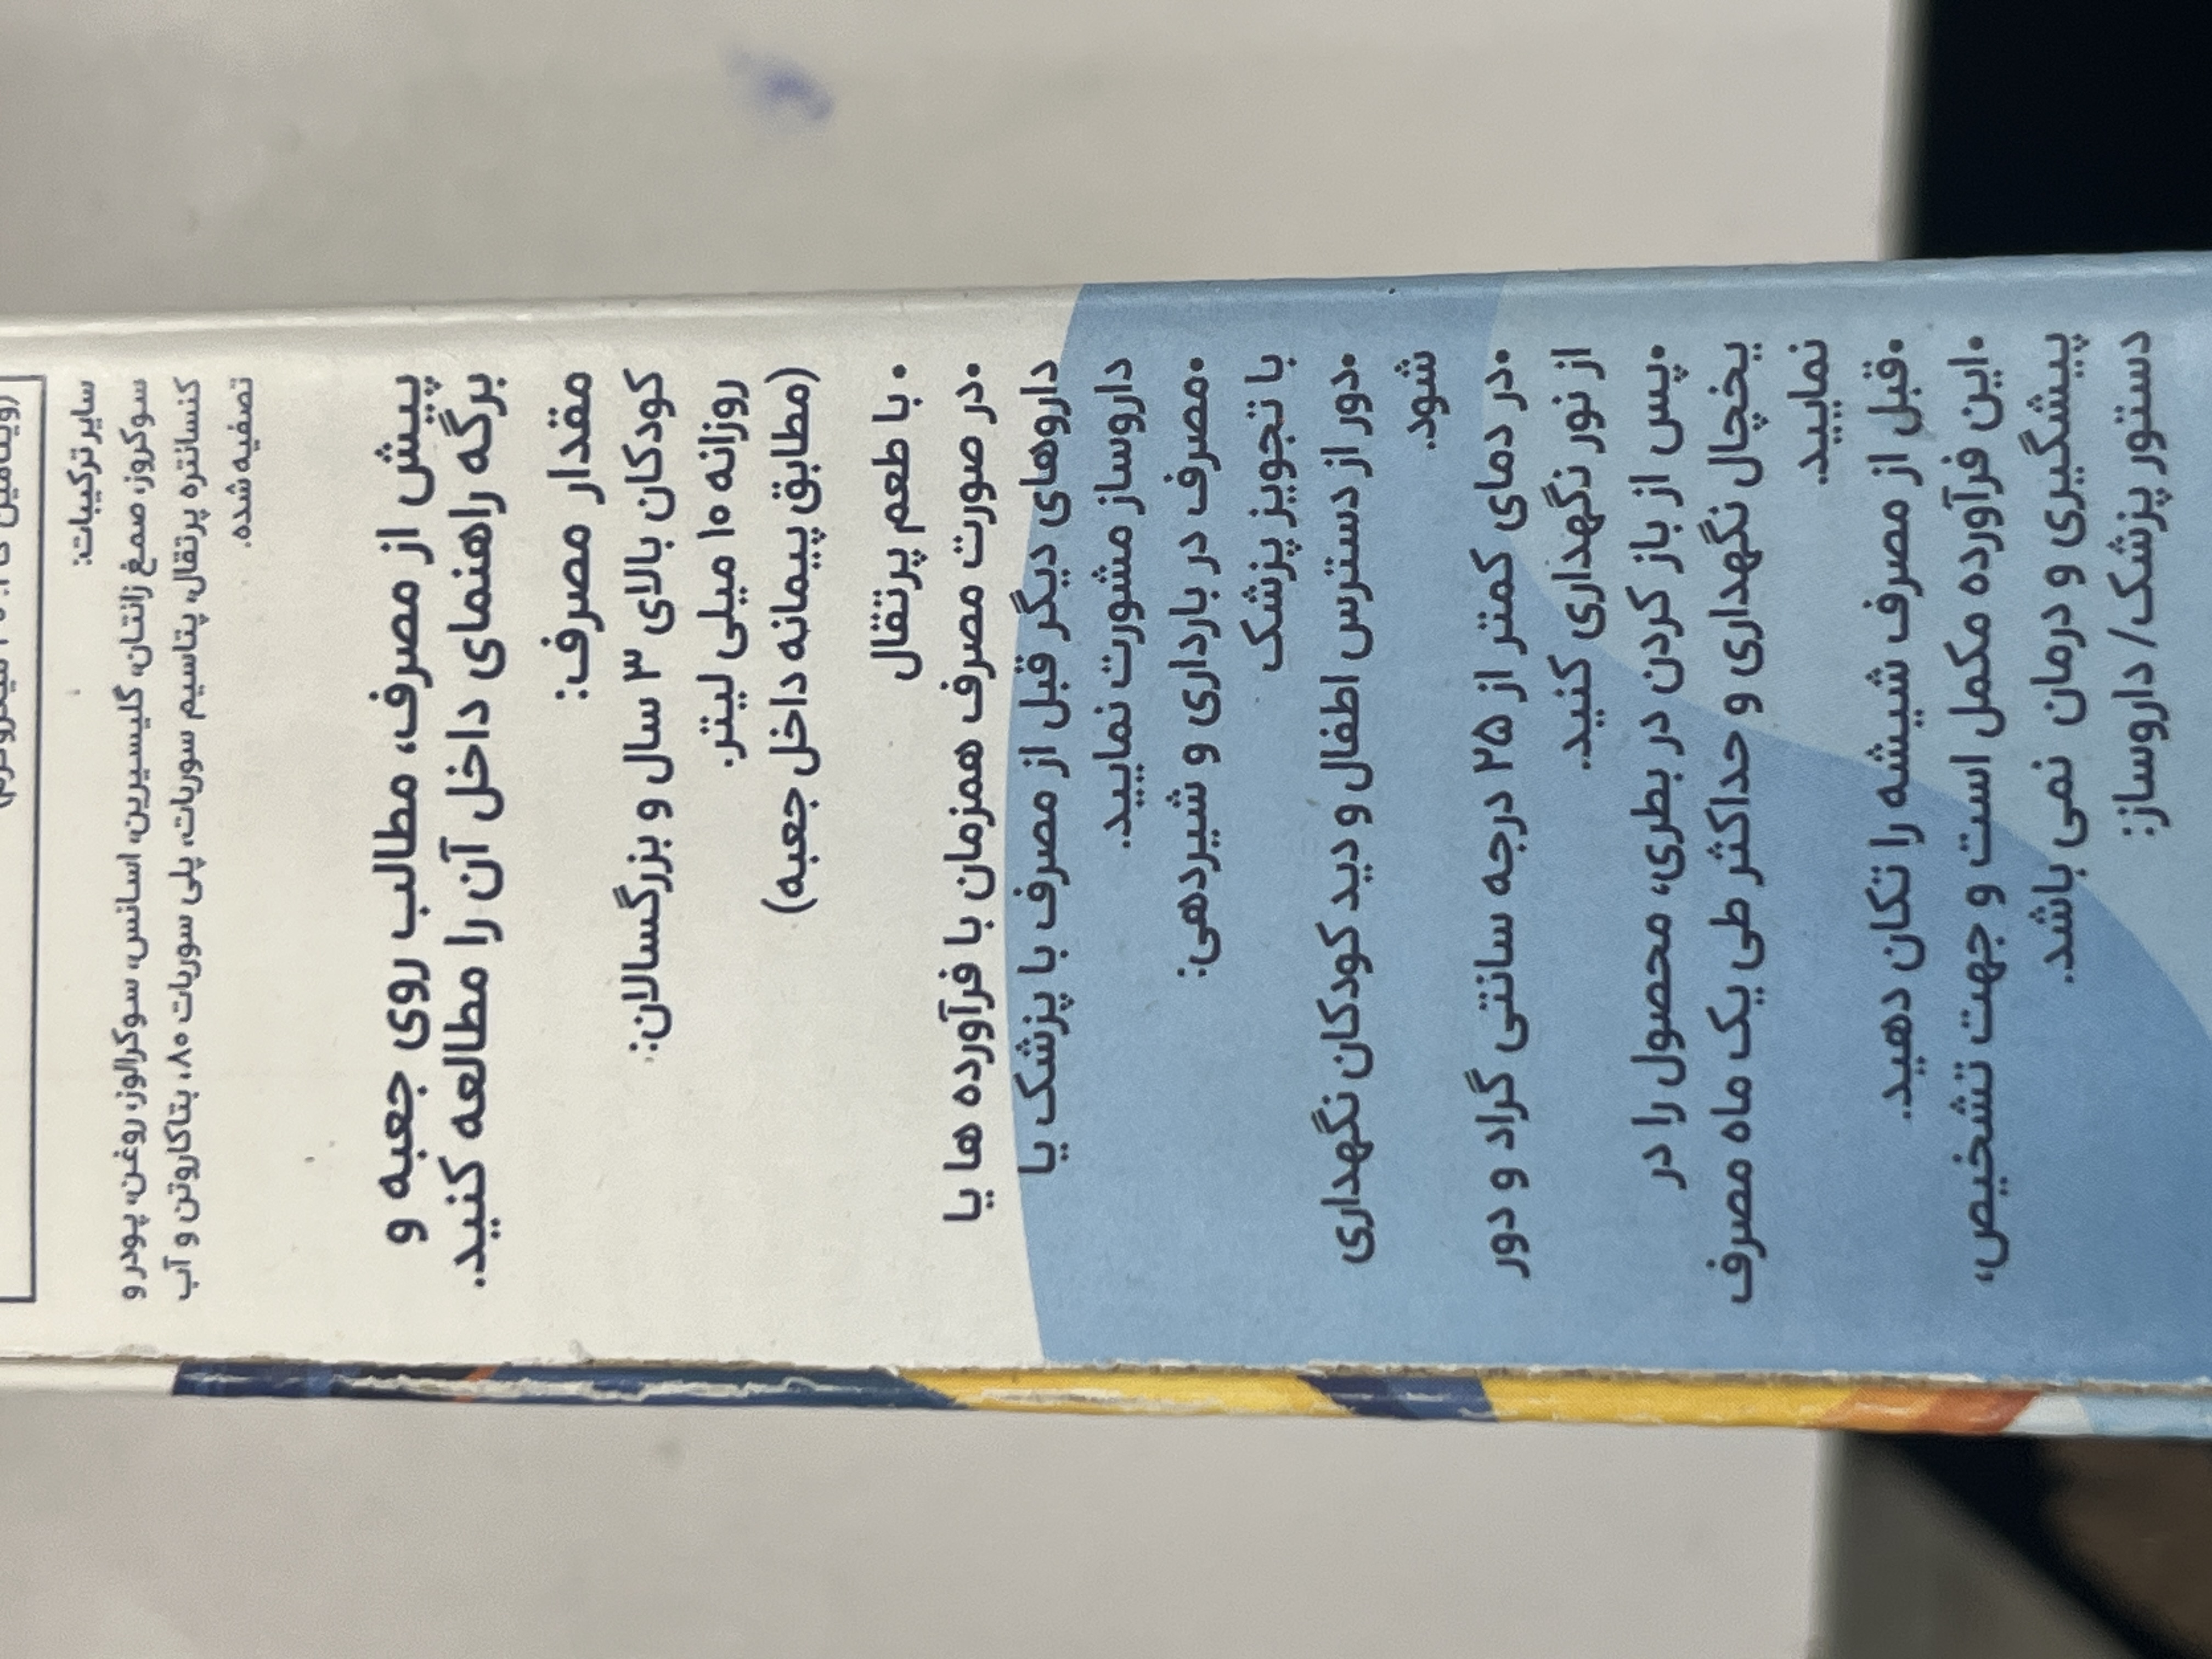 سایر ترکیبات:
سوکروز، صمغ زانتان، گلیسیرین، اسانس، سوکرالوز، روغن، پودر و
کنسانتره پرتقال، پتاسیم سوربات، پلی سوربات ۸۰، بتاکاروتن و آب
تصفیه شده.
پیش از مصرف، مطالب روی جعبه و
برگه راهنمای داخل آن را مطالعه کنید.
مقدار مصرف:
کودکان بالای ۳ سال و بزرگسالان:
روزانه ۱۰ میلی لیتر.
(مطابق پیمانه داخل جعبه)
• با طعم پرتقال
•در صورت مصرف همزمان با فرآورده ها یا
داروهای دیگر قبل از مصرف با پزشک یا
داروساز مشورت نمایید.
•مصرف در بارداری و شیردهی:
با تجویز پزشک
•دور از دسترس اطفال و دید کودکان نگهداری
شود.
•در دمای کمتر از ۲۵ درجه سانتی گراد و دور
از نور نگهداری کنید.
•پس از باز کردن در بطری، محصول را در
یخچال نگهداری و حداکثر طی یک ماه مصرف
نمایید.
•قبل از مصرف شیشه را تکان دهید.
•این فرآورده مکمل است و جهت تشخیص،
پیشگیری و درمان نمی باشد.
دستور پزشک/ داروساز: